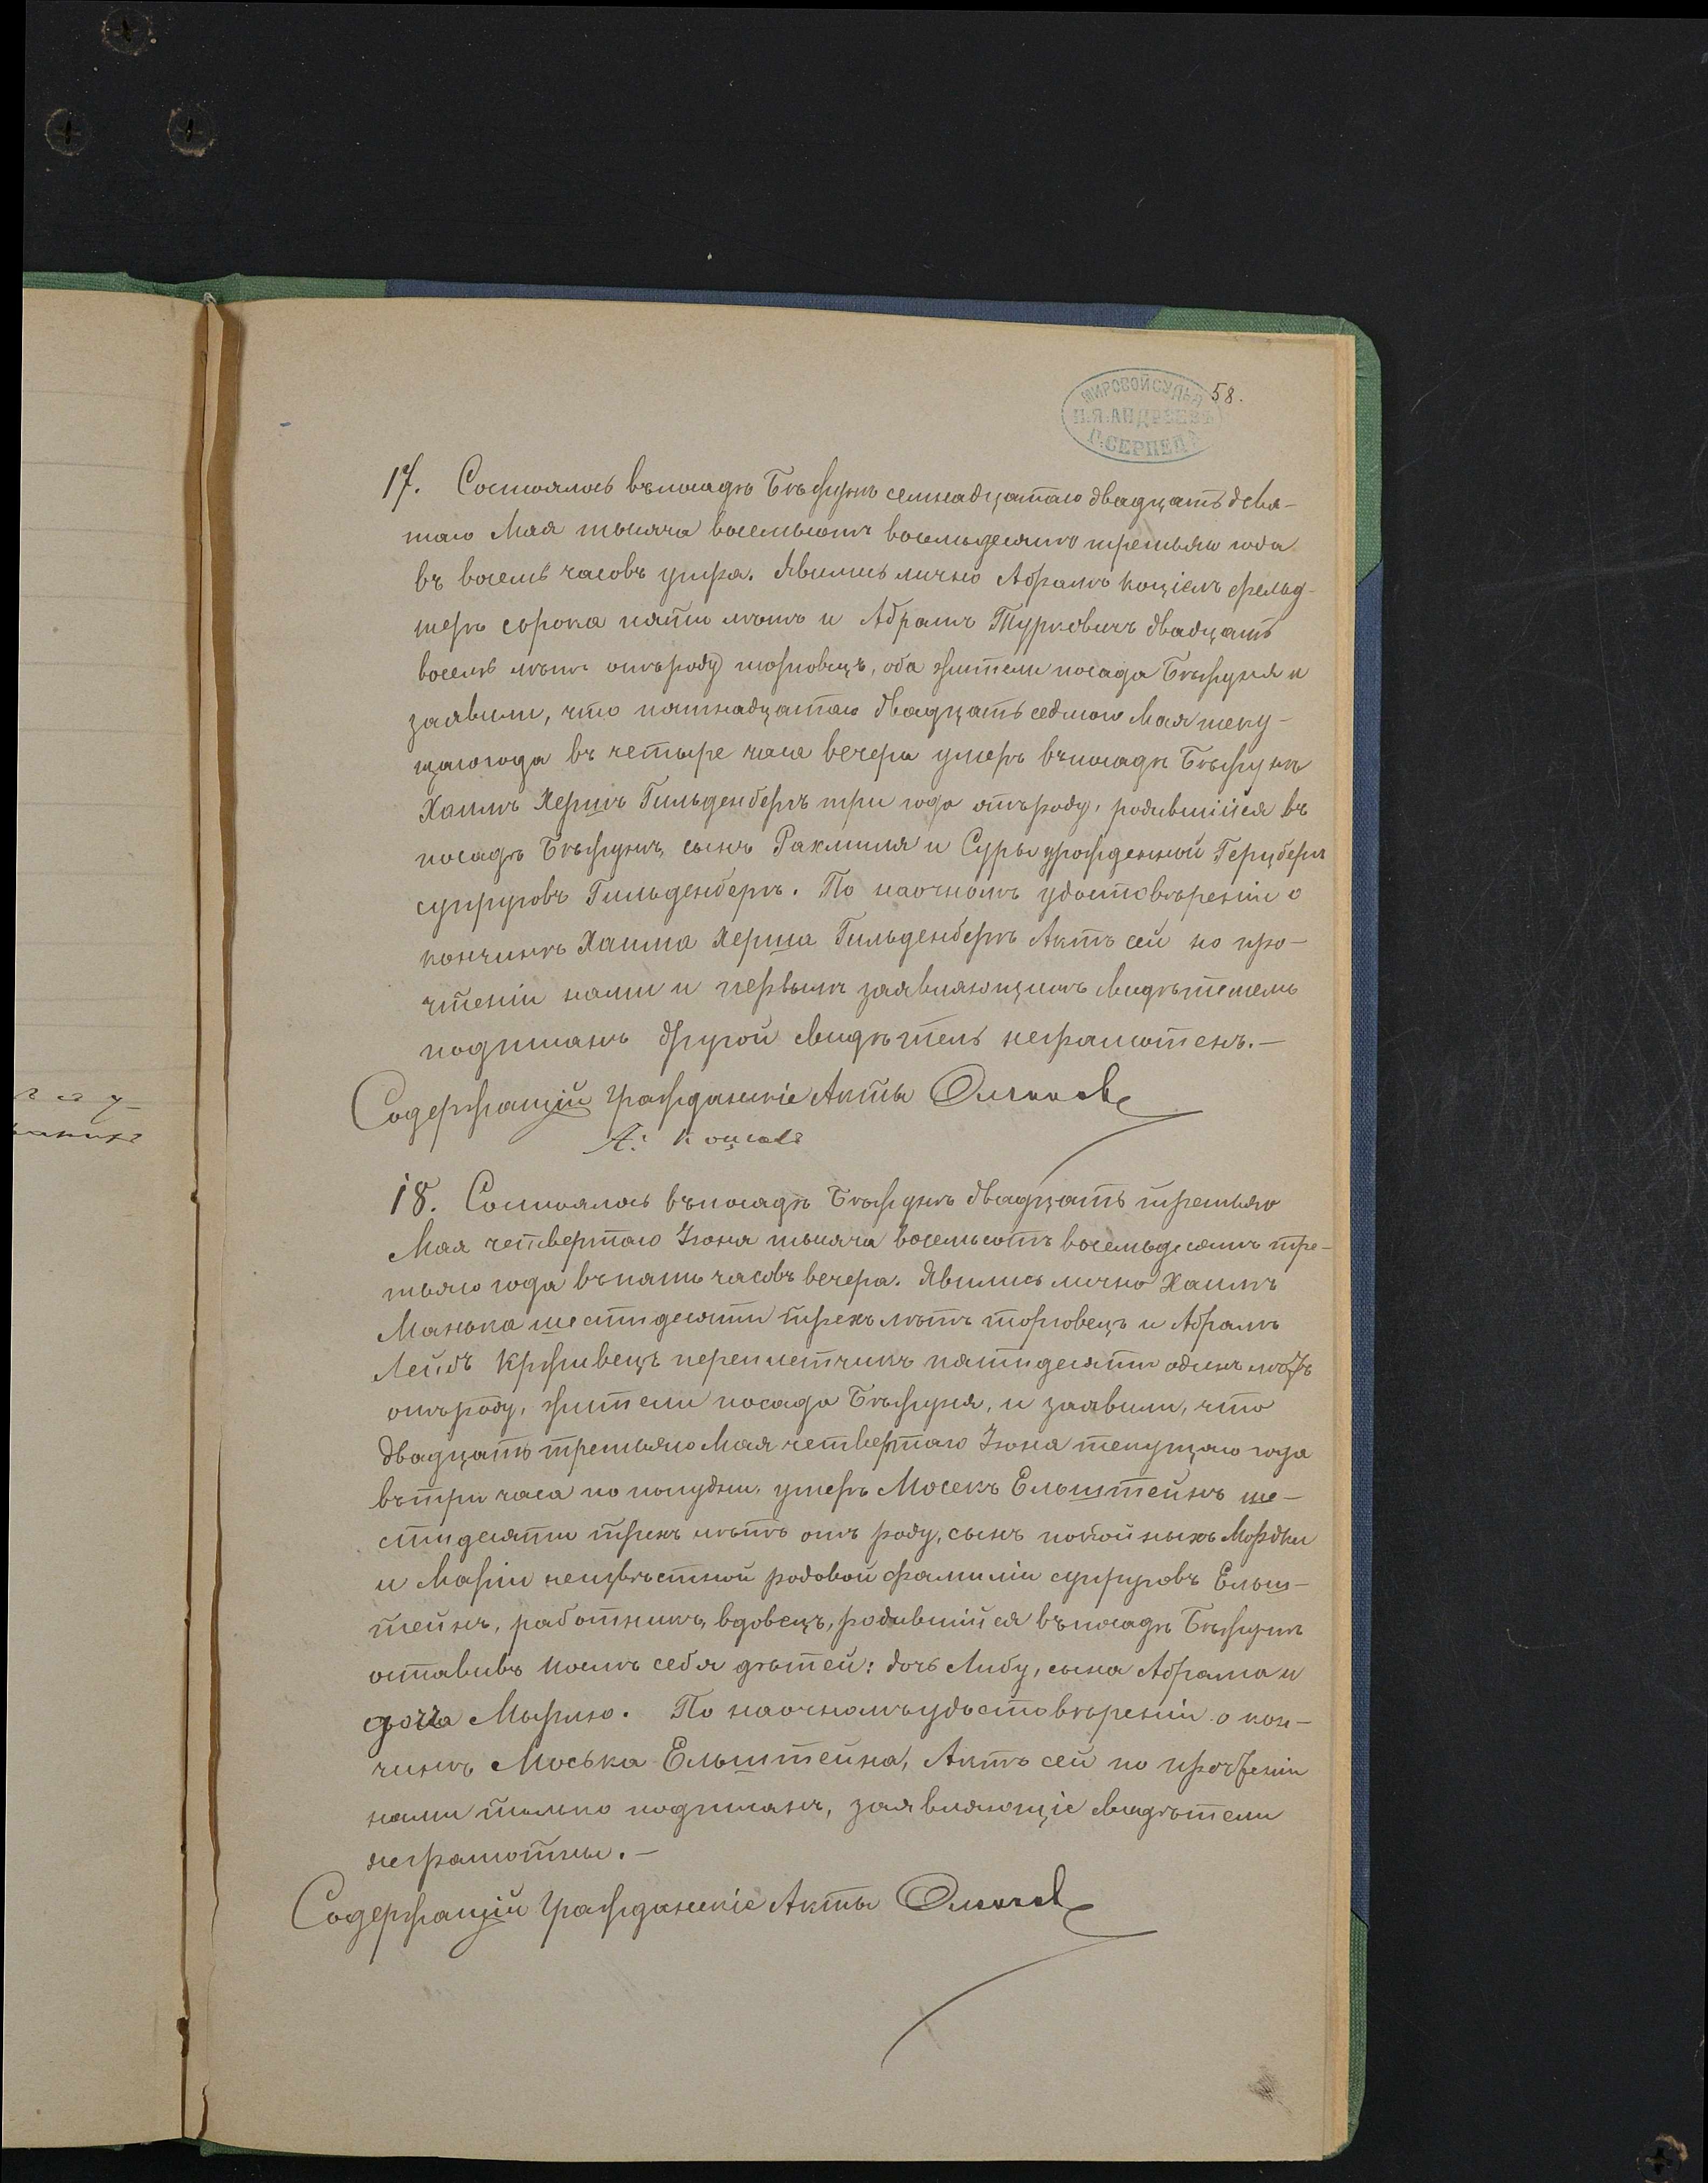 МИРОВОЙ СУДЬЯ
П.Я. АНДРЕЕВЪ
П. СЕРПЕЦЪ
58.
17. Состоялось въ посадѣ Бѣжунѣ семнадцатаго двадцать девя-
таго Мая тысяча восемьсотъ восемьдесятъ третьяго года
въ восемь часовъ утра. Явились лично Абрамъ Коціелъ фельд-
шеръ сорока пяти лѣтъ и Абрамъ Турковичъ двадцать
восемь лѣтъ отъ роду торговецъ, оба жители посада Бѣжуня и
заявили, что пятнадцатаго двадцать седмого Мая теку-
щаго года въ четыре часа вечера умеръ въ посадѣ Бѣжунѣ
Хаимъ Хершъ Гильденбергъ три года отъ роду, родившійся въ
посадѣ Бѣжунѣ, сынъ Рахмиля и Суры урожденной Герцбергъ
супруговъ Гильденбергъ. По наочномъ удостовѣреніи о
кончинѣ Хаима Херша Гильденбергъ Актъ сей по про-
чтеніи нами и первымъ заявляющимъ свидѣтелемъ
подписанъ другой свидѣтель неграмотенъ.—
Содержащій Гражданскіе Акты
А:
18. Состоялось въ посадѣ Бѣжунѣ двадцать третьяго
Мая четвертаго Іюня тысяча восемьсотъ восемьдесятъ тре-
тьяго года въ пять часовъ вечера. Явились лично Хаимъ
Манька шестидесяти трехъ лѣтъ торговецъ и Абрамъ
Лейбъ Крживецъ переплетчикъ пятидесяти одинъ лѣтъ
отъ роду, жители посада Бѣжуня, и заявили, что
двадцать третьяго Мая четвертаго Іюня текущаго года
въ три часа по полудни, умеръ Мосекъ Ельштейнъ ше-
стидесяти трехъ лѣтъ отъ роду, сынъ покойныхъ Мордки
и Маріи неизвѣстной родовой фамиліи супруговъ Ельш-
тейнъ, работникъ, вдовецъ, родившійся въ посадѣ Бѣжунѣ
оставивъ послѣ себя дѣтей: дочь Либу, сына Абрама и
дочь По наочномъ удостовѣреніи о кон-
чинѣ Моська Ельштейна, Актъ сей по прочтеніи
нами только подписанъ, заявляющіе свидѣтели
неграмотны.—
Содержащій Гражданскіе Акты